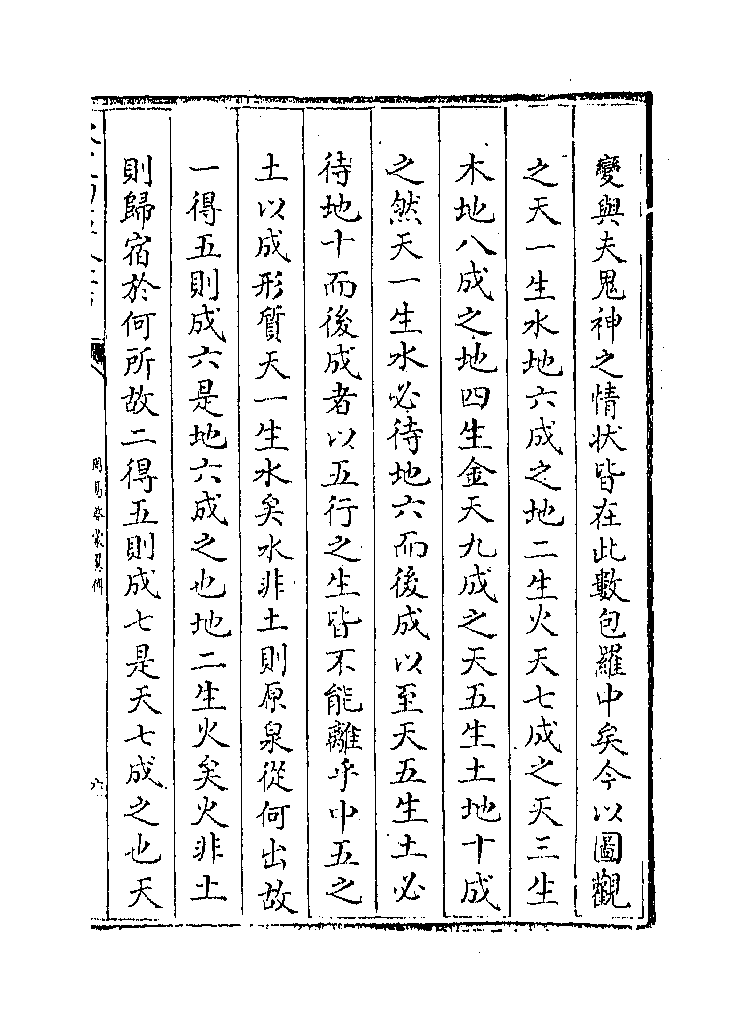 變與夫鬼神之情狀皆在此數包羅中矣今以圖觀
之天一生水地六成之地二生火天七成之天三生
木地八成之地四生金天九成之天五生土地十成
之然天一生水必待地六而後成以至天五生土必
待地十而後成者以五行之生皆不能離乎中五之
土以成形質天一生水矣水非土則原泉從何出故
一得五則成六是地六成之也地二生火矣火非土
則歸宿於何所故二得五則成七是天七成之也天
周易啓蒙翼傳
六